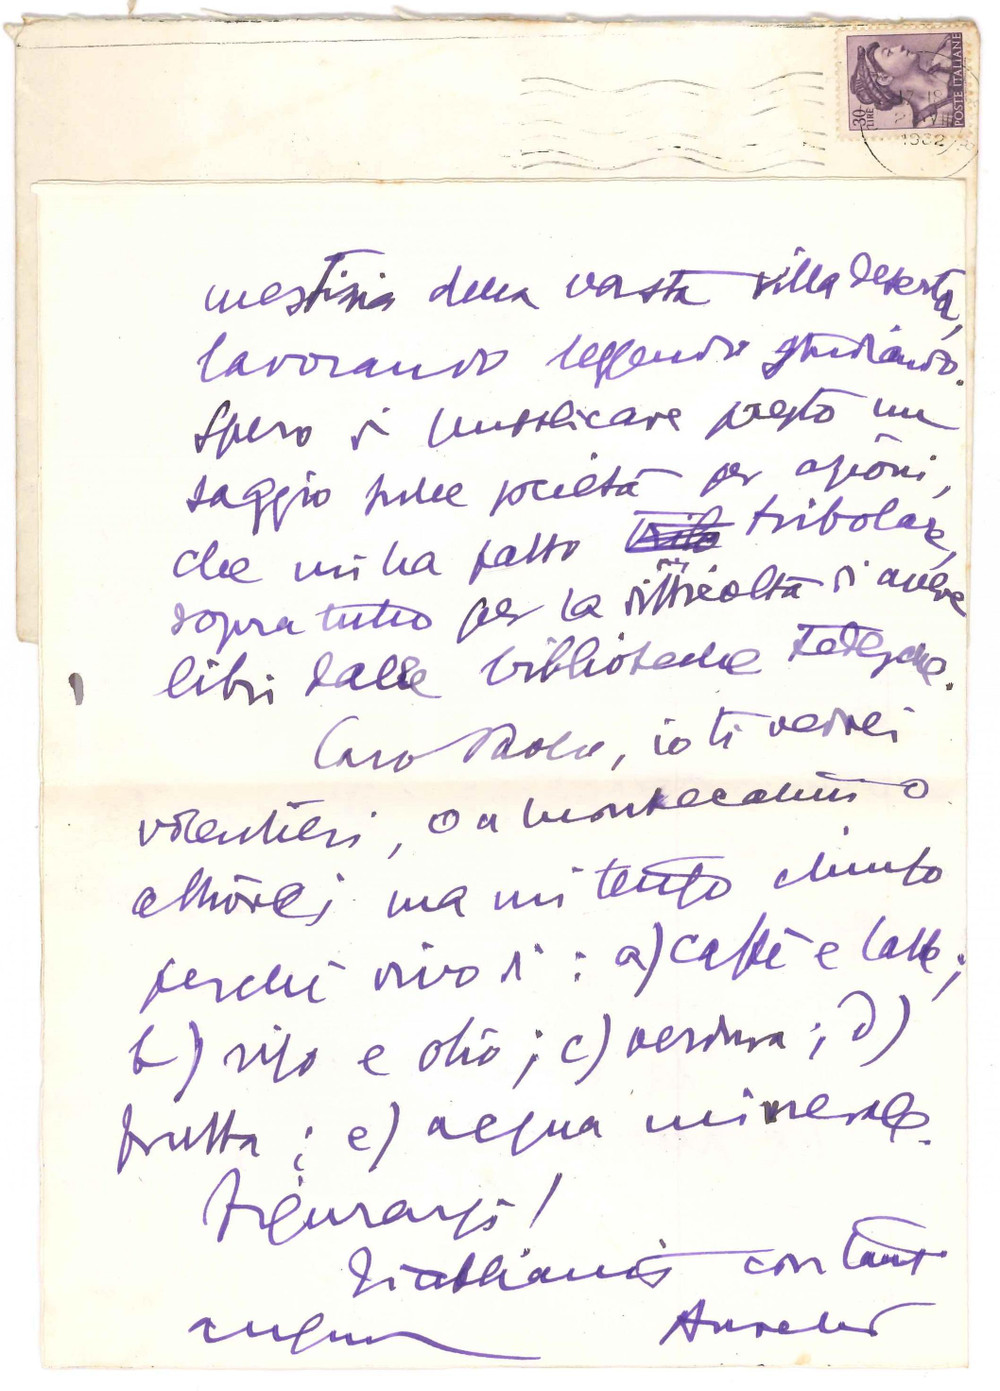 POSTE ITALIANE
30 LIRE
17-18
1962
mestizia della vasta villa deserta,
lavorando leggendo studiando.
Spero di pubblicare presto un
saggio sulle società per azioni,
che mi ha fatto tribolare,
sopra tutto per la difficoltà di avere
libri dalle biblioteche tedesche.
Caro Paolo, io ti vedrei
volentieri, o a Montecatini o
altrove; ma mi tengo chiuso
perché vivo di: a) caffè e latte;
b) riso e olio; c) verdura; d)
frutta; e) acqua minerale.
Figurarsi!
Riabbiamoci con tanti
auguri